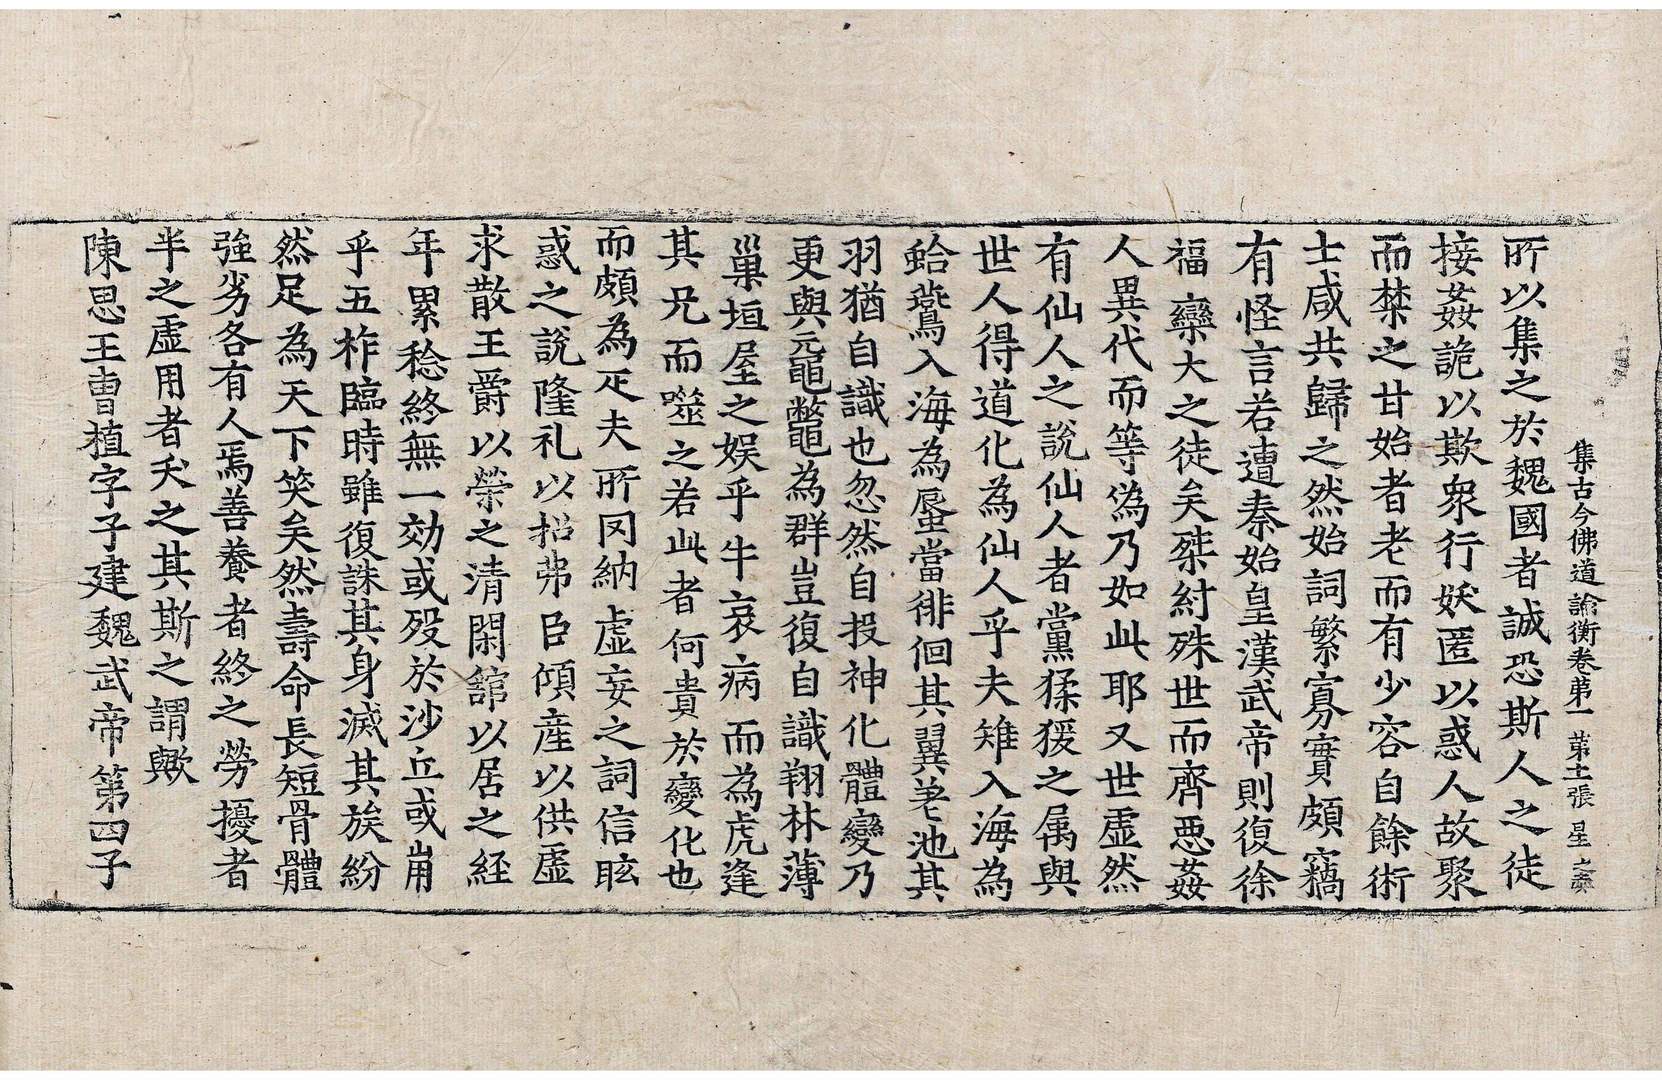 集古今佛道論衡卷第一 第十一張 星
所以集之於魏國者誠恐斯人之徒
接姦詭以欺衆行妖匿以惑人故聚
而禁之甘始者老而有少容自餘術
士咸共歸之然始詞繁寡實頗竊
有怪言若遭秦始皇漢武帝則復徐
福欒大之徒矣桀紂殊世而齊惡姦
人異代而等僞乃如此耶又世虛然
有仙人之說仙人者黨猱猨之属與
世人得道化為仙人乎夫雉入海為
蛤鷰入海為蜃當徘徊其翼差池其
羽猶自識也忽然自投神化體變乃
更與黿鼈為群豈復自識翔林薄
巢垣屋之娱乎牛哀病而為虎逢
其兄而噬之若此者何貴於變化也
而頗為疋夫所罔納虛妄之詞信眩
惑之說隆礼以招弗臣傾產以供虛
求散王爵以榮之清閑舘以居之経
年累稔終無一効或殁於沙丘或崩
乎五柞臨時雖復誅其身滅其族紛
然足為天下笑矣然壽命長短骨體
強劣各有人焉善養者終之勞擾者
半之虛用者夭之其斯之謂歟
陳思王曺植字子建魏武帝第四子